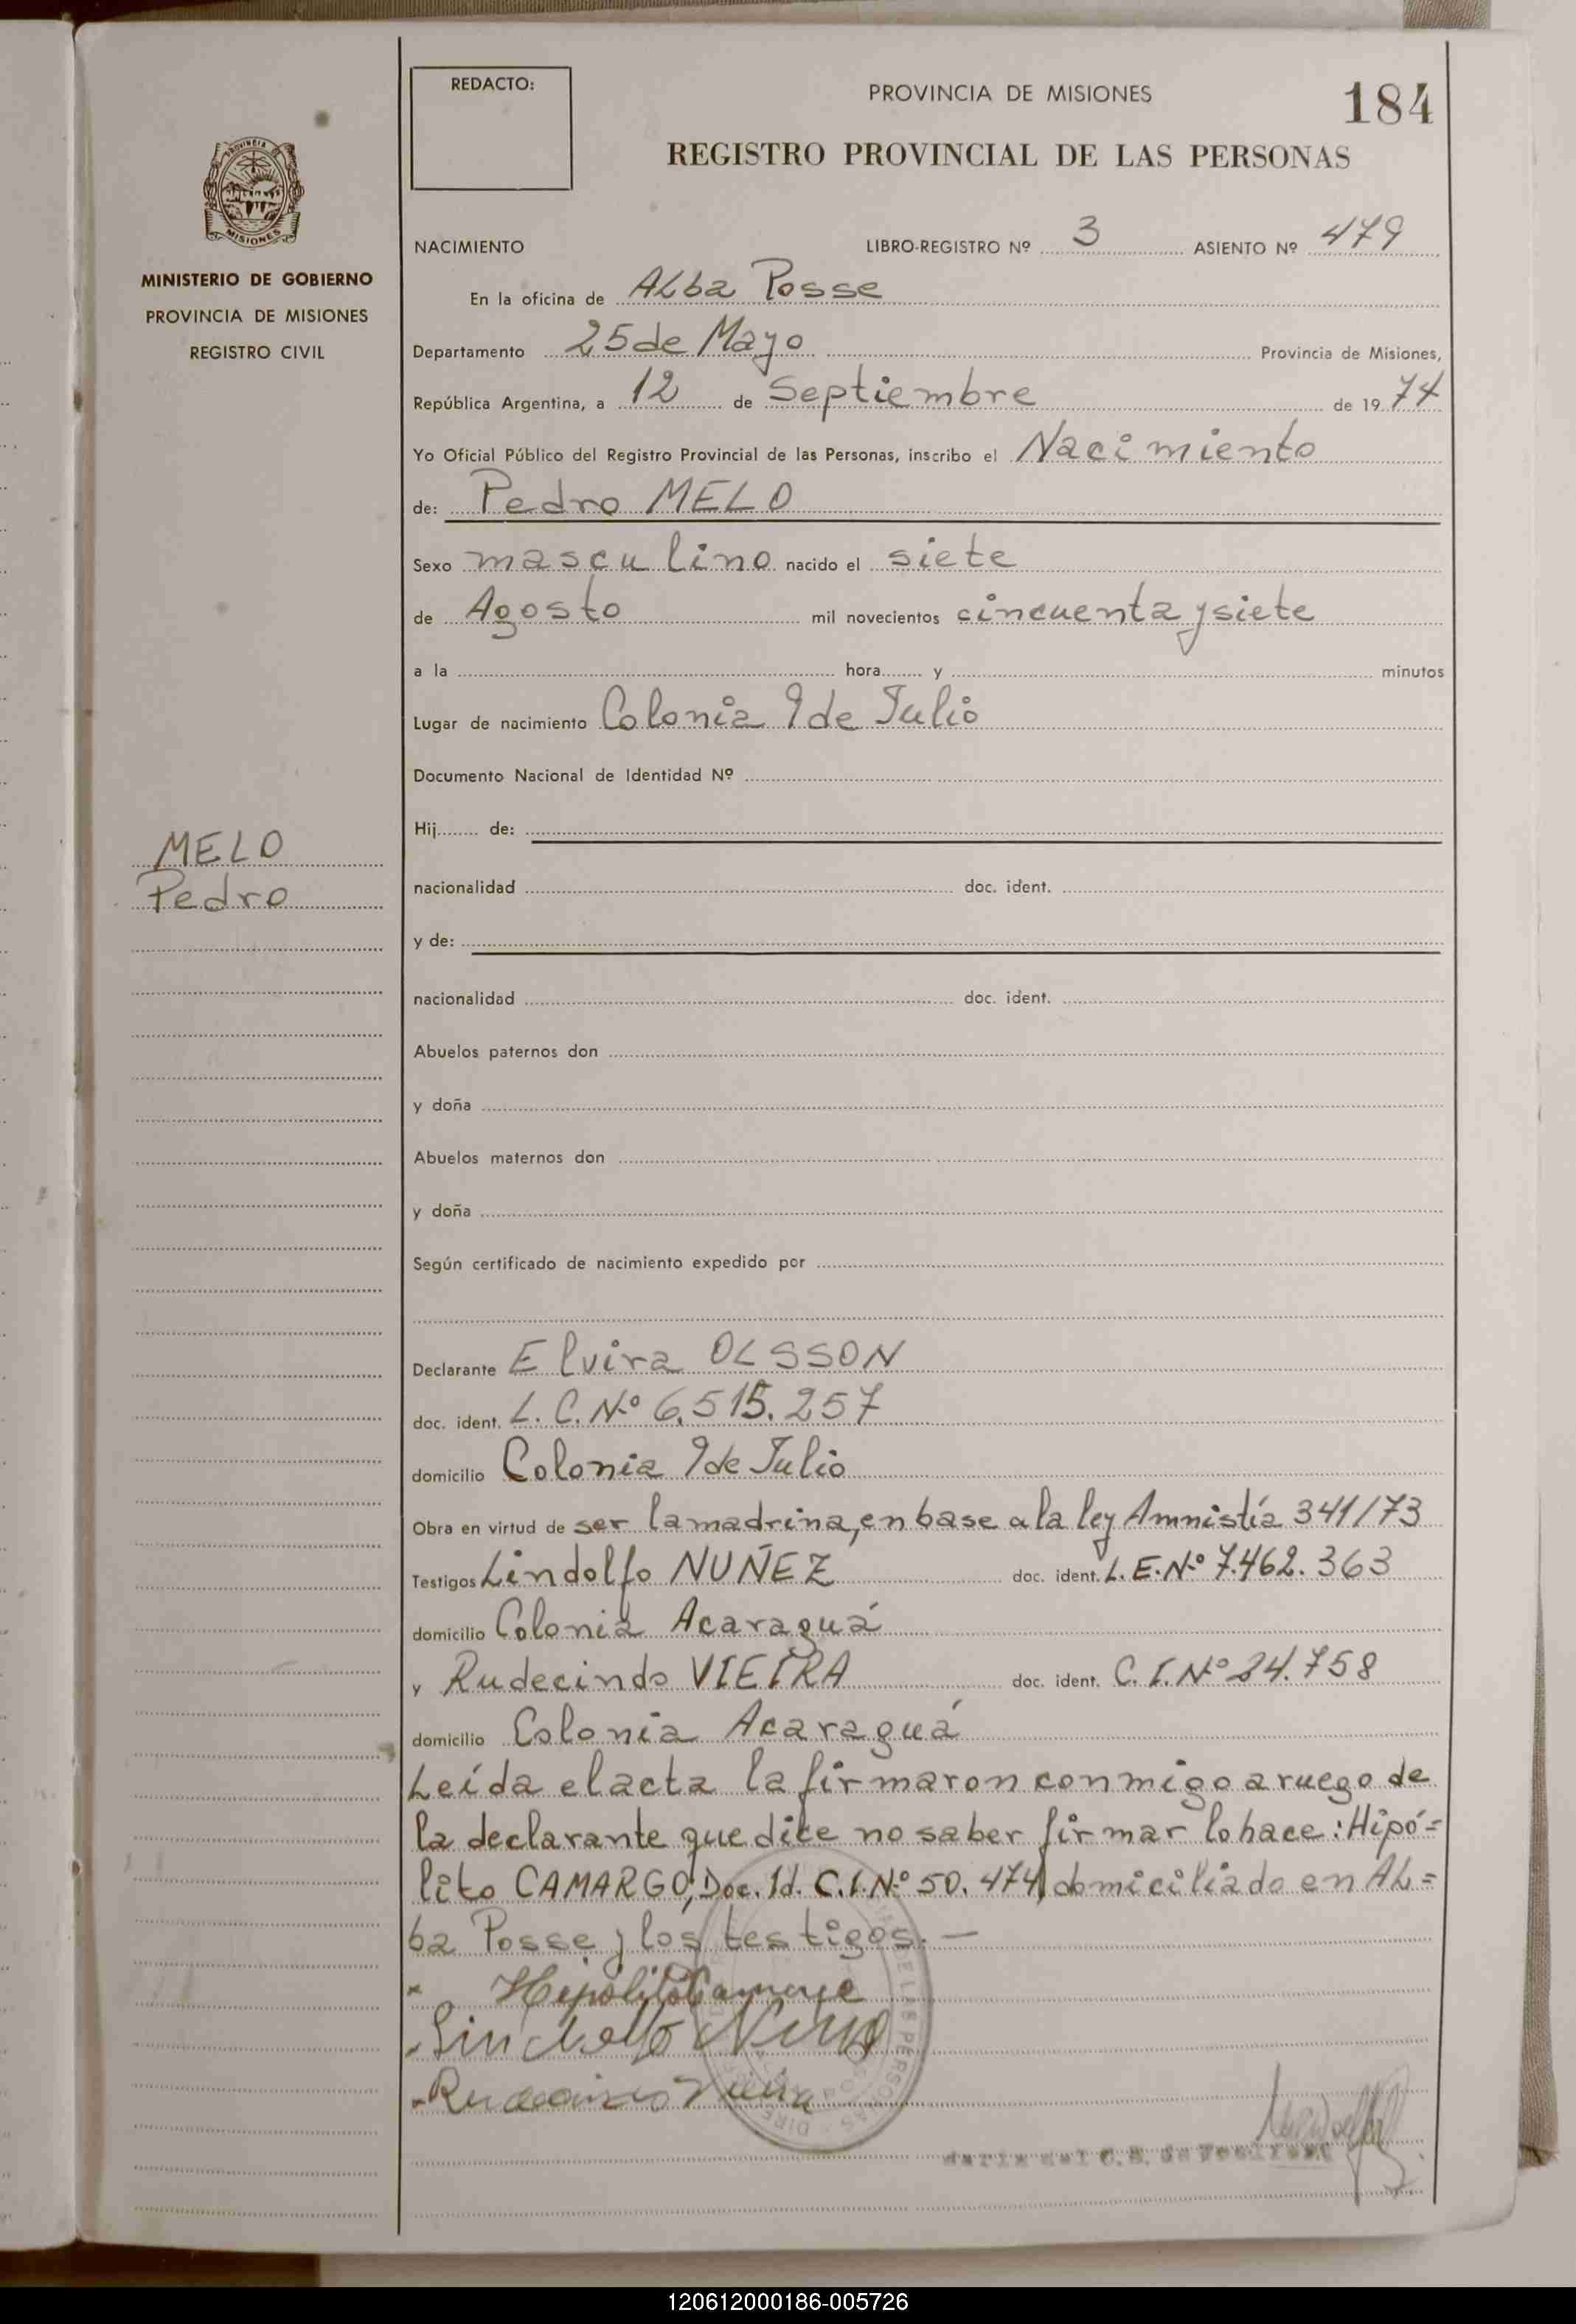 REDACTO:
PROVINCIA DE MISIONES
184
REGISTRO PROVINCIAL DE LAS PERSONAS
PROVINCIA DE
MISIONES
MINISTERIO DE GOBIERNO
PROVINCIA DE MISIONES
REGISTRO CIVIL
NACIMIENTO LIBRO-REGISTRO Nº 3 ASIENTO Nº 479
En la oficina de ALba Posse
Departamento 25 de Mayo Provincia de Misiones,
República Argentina, a 12 de Septiembre de 19 74
Yo Oficial Público del Registro Provincial de las Personas, inscribo el Nacimiento
de: Pedro MELO
Sexo masculino nacido el siete
de Agosto mil novecientos cincuenta y siete
a la hora y minutos
Lugar de nacimiento Colonia 9 de Julio
Documento Nacional de Identidad Nº
Hij de:
MELO
Pedro
nacionalidad doc. ident.
y de:
nacionalidad doc. ident.
Abuelos paternos don
y doña
Abuelos maternos don
y doña
Según certificado de nacimiento expedido por
Declarante Elvira OLSSON
doc. ident. L. C. Nº 6.515.257
domicilio Colonia 9 de Julio
Obra en virtud de ser la madrina, en base a la ley Amnistía 341/73
Testigos Lindolfo NUÑEZ doc. ident. L. E. Nº 7.462.363
domicilio Colonia Acaraguá
y Rudecindo VIEIRA doc. ident. C. I. Nº 24.758
domicilio Colonia Acaraguá
Leída el acta la firmaron conmigo a ruego de
la declarante que dice no saber firmar lo hace: Hipó=
lito CAMARGO, Doc. Id. C. I. Nº 50.474, domiciliado en AL=
ba Posse y los testigos. —
Hipolito Camargo
Lindolfo Nuñez
Rudecindo Vieira
120612000186-005726